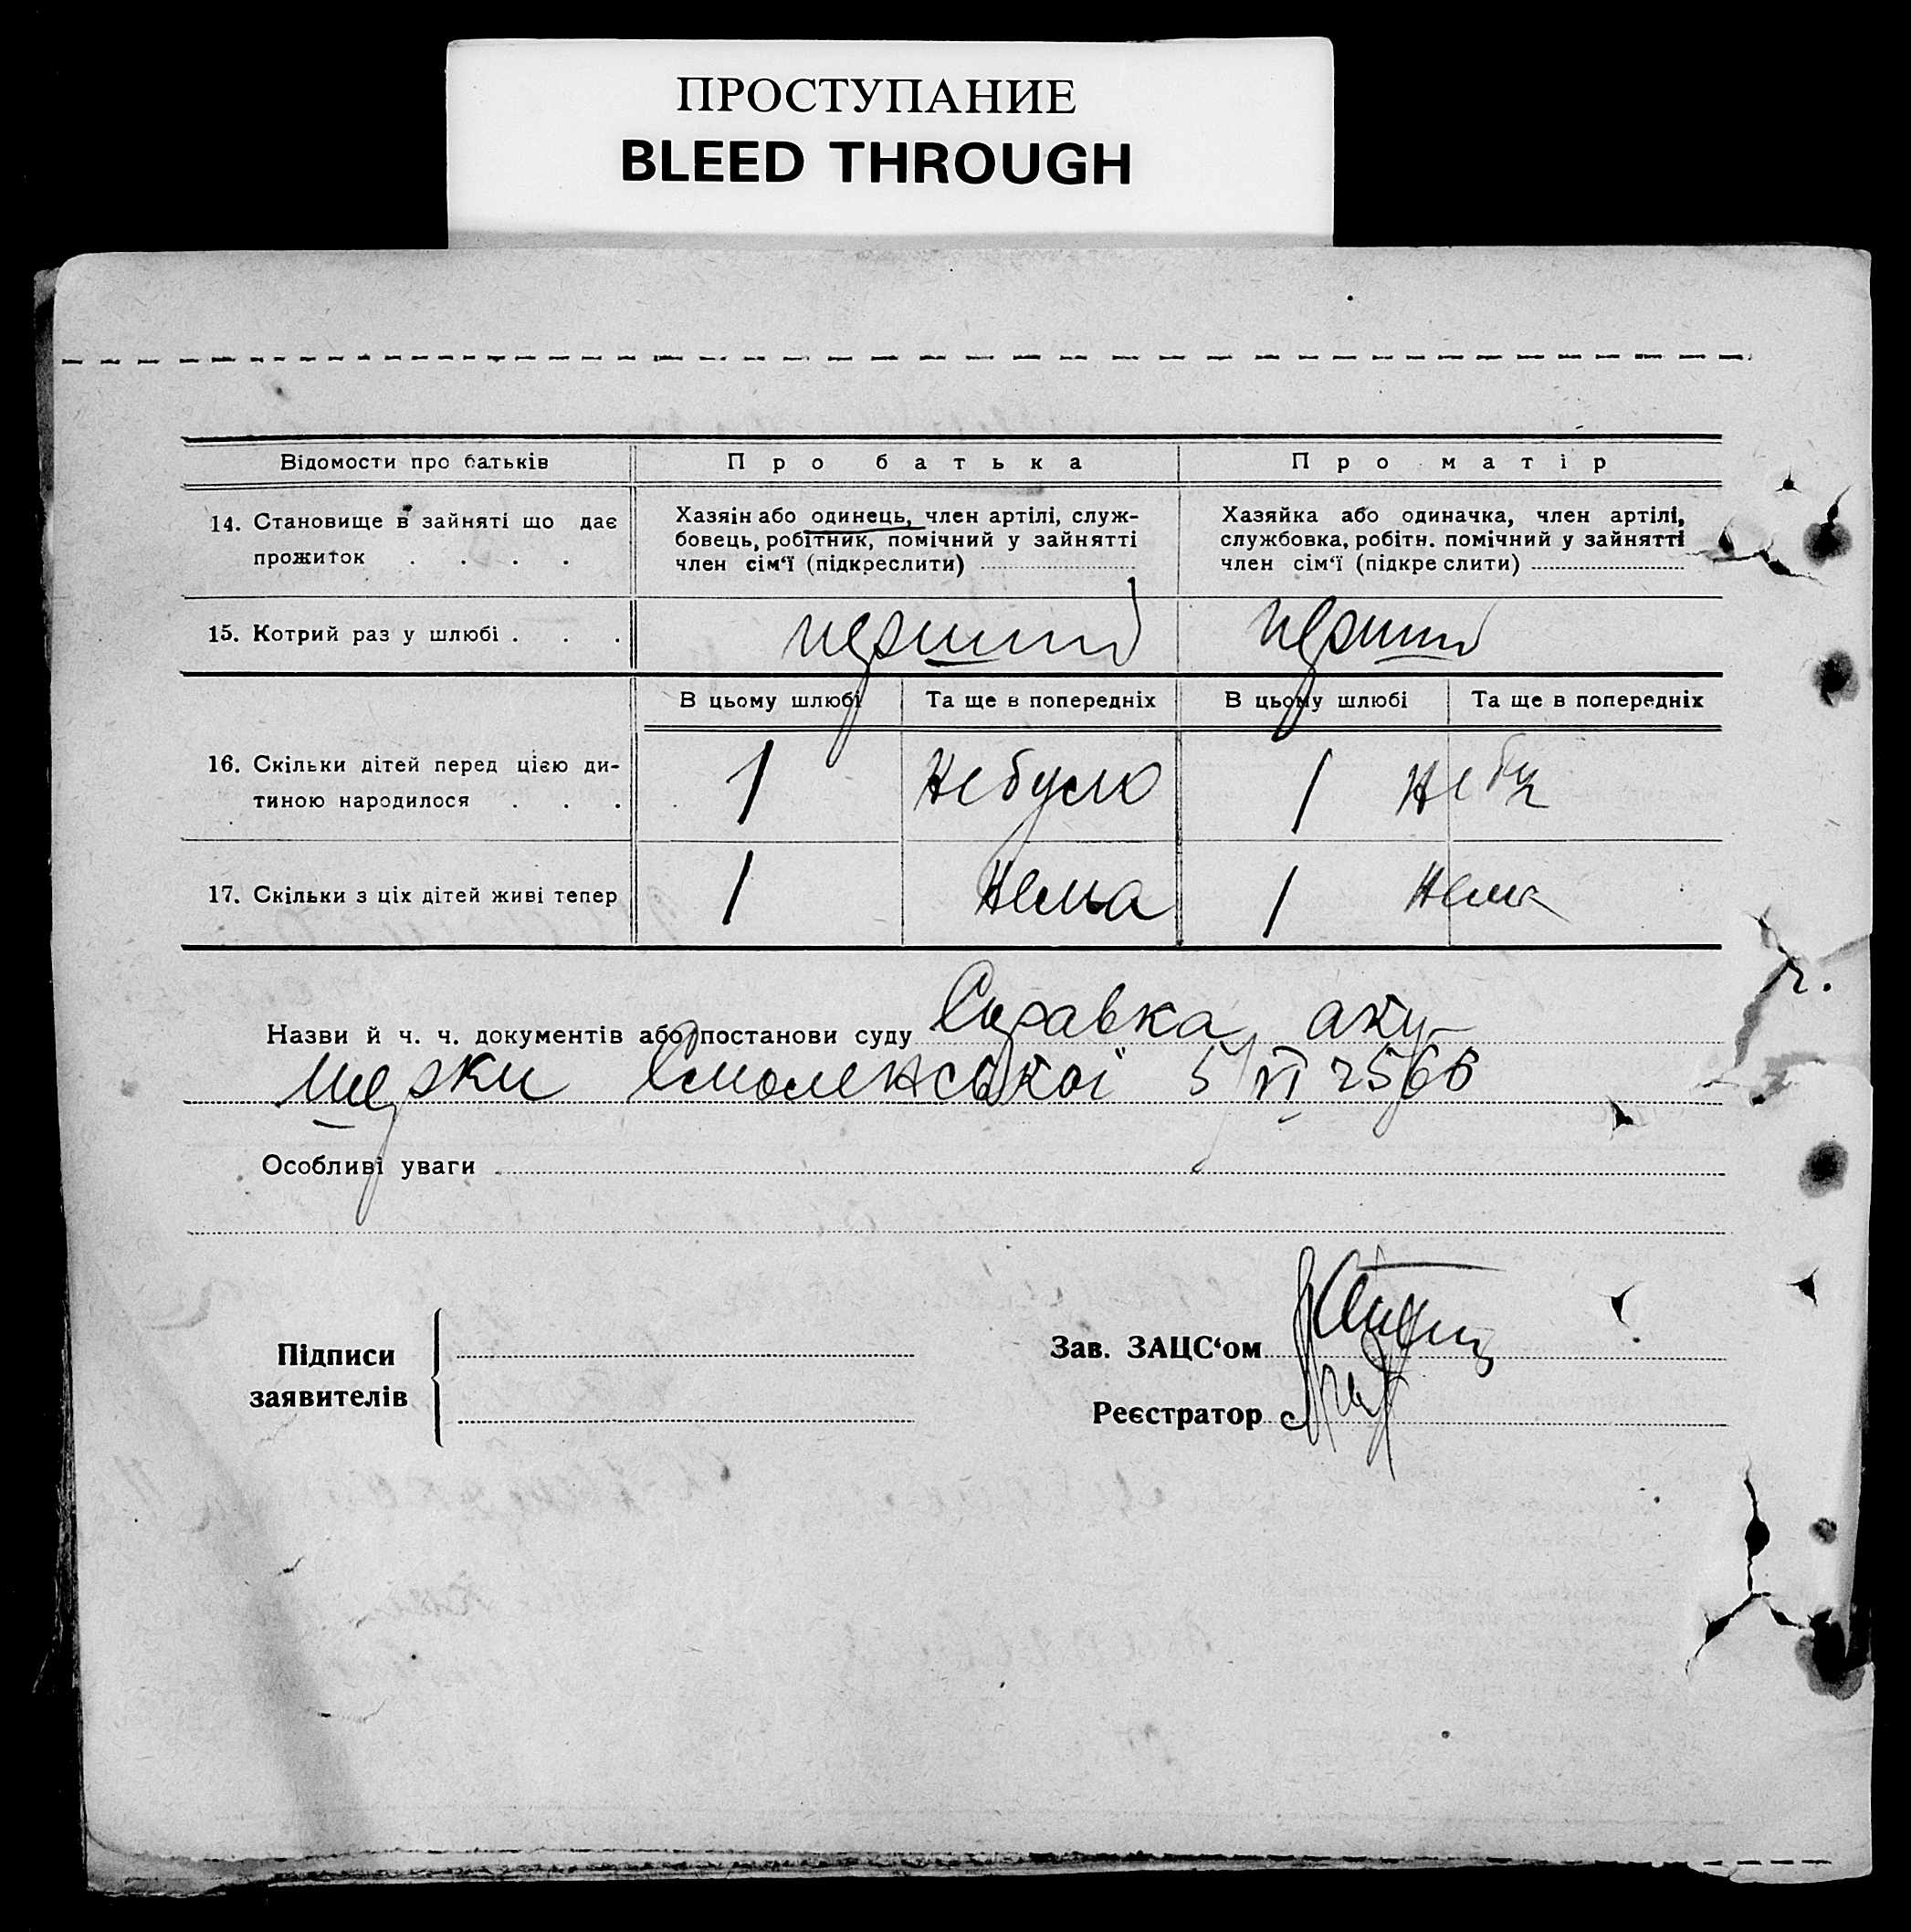 ПРОСТУПАНИЕ
BLEED THROUGH
Відомости про батьків
Про батька
Про матір
14. Становище в зайняті що дає
прожиток . . . .
Хазяін або одинець, член артілі, служ-
бовець, робітник, помічний у зайнятті
член сім‘ї (підкреслити)
Хазяйка або одиначка, член артілі,
службовка, робітн. помічний у зайнятті
член сім‘ї (підкреслити)
15. Котрий раз у шлюбі . . .
перший
перший
В цьому шлюбі
Та ще в попередніх
В цьому шлюбі
Та ще в попередніх
16. Скільки дітей перед цією ди-
тиною народилося . . .
1
Небуло
1
Небу
17. Скільки з ціх дітей живі тепер
1
Нема
1
Нема
Назви й ч. ч. документів або постанови суду Справка аку-
шерки Смоленської 5/VI 2566
Особливі уваги
Підписи
заявителів
Зав. ЗАЦС‘ом
Реєстратор